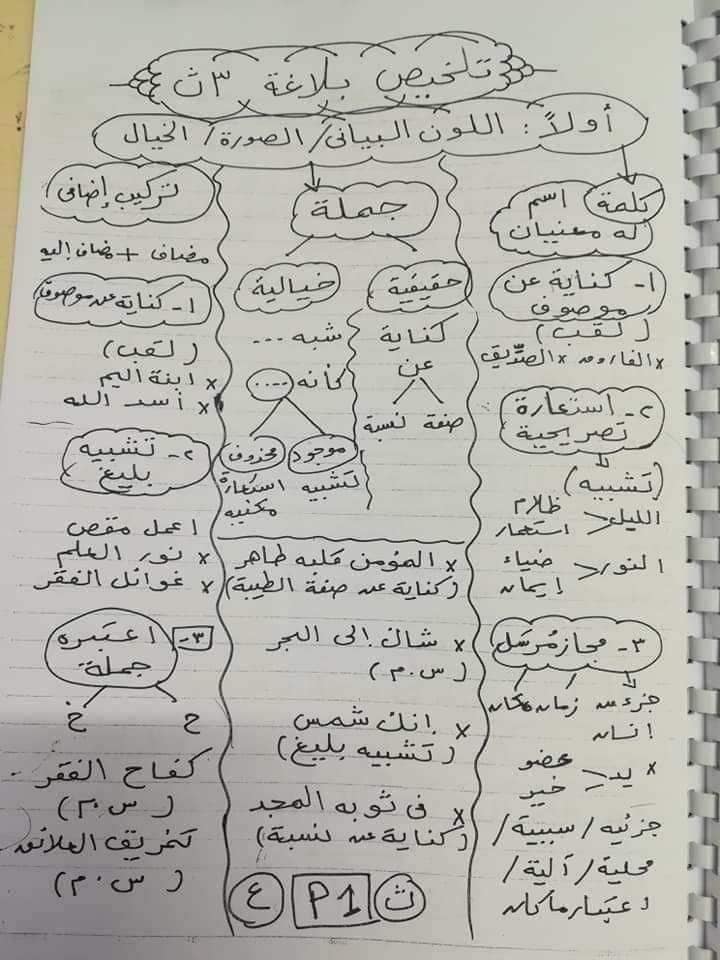 تلخيص بلاغة ٣ث
أولاً: اللون البيانى/الصورة/الخيال
كلمة اسم
له معنيان
١- كناية عن
موصوف
(لقب)
× الفاروق × الصّدِّيق
٢- استعارة
تصريحية
(تشبيه)
الليل < ظلام
استعمار
النور < ضياء
إيمان
٣- مجاز مُرسَل
جزء من زمان مكان
انسان
× يد < عضو
خير
جزئيه / سببية /
محلية / آلية /
اعتبار ما كان
جملة
حقيقية
كناية
عن
صفة نسبة
خيالية
شبه ...
كأنه ....
موجود محذوف
تشبيه استعارة
مكنيه
× المؤمن قلبه طاهر
(كناية عن صفة الطيبة)
× شاك إلى البحر
(س.م)
× إنك شمس
(تشبيه بليغ)
× فى ثوبه المجد
(كناية عن نسبة)
تركيب إضافى
مضاف + مضاف إليه
١- كناية عن موصوف
(لقب)
× ابنة اليم
× أسد الله
٢- تشبيه
بليغ
اعمل مقص
× نور العلم
× غوائل الفقر
٣- اعتبره
جملة
ح خ
كفاح الفقر
(س.م)
تمزيق العلائق
(س.م)
ث P1 ع